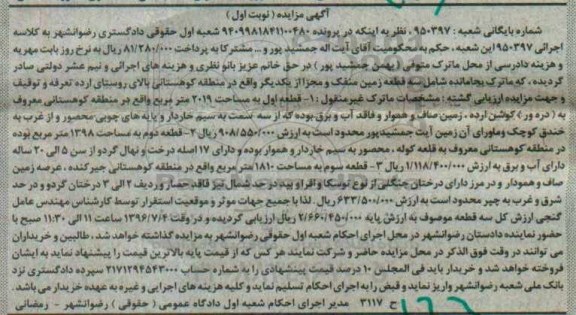 آگهی مزایده ( نوبت اول )
شماره بایگانی شعبه : ۹۵۰۳۹۷ ، نظر به اینکه در پرونده ۹۴۰۹۹۸۱۸۴۱۱۰۰۴۸۰ شعبه اول حقوقی دادگستری رضوانشهر به کلاسه
اجرائی ۹۵۰۳۹۷ این شعبه ، حکم به محکومیت آقای آیت اله جمشید پور و ... مشترکا به پرداخت ۸۱/۲۸۰/۰۰۰ ریال به نرخ روز بابت مهریه
و هزینه دادرسی از محل ماترک متوفی ( بهمن جمشید پور ) در حق خانم عزیز بانو نظری و هزینه های اجرائی و نیم عشر دولتی صادر
گردیده ، که ماترک بجامانده شامل سه قطعه زمین منفک و مجزا از یکدیگر واقع در منطقه کوهستانی بالای روستای ارده تعرفه و توقیف
و جهت مزایده ارزیابی گشته : مشخصات ماترک غیرمنقول : ۱- قطعه اول به مساحت ۲۰۱۹ متر مربع واقع در منطقه کوهستانی معروف
به ( دره ور ) کوشن ارده ، زمین صاف و هموار و فاقد آب و برق بوده که از سه سمت به سیم خاردار و پایه های چوبی محصور و از غرب به
خندق کوچک وماورای آن زمین آیت جمشیدپور محدود است به ارزش ۹۰۸/۵۵۰/۰۰۰ ریال ۲- قطعه دوم به مساحت ۱۳۹۸ متر مربع بوده
در منطقه کوهستانی معروف به قلعه کوله ، محصور به سیم خاردار و هموار بوده و دارای ۱۷ اصله درخت و نهال گردو از سن ۵ الی ۲۰ ساله
دارای آب و برق به ارزش ۱/۱۱۸/۴۰۰/۰۰۰ ریال ۳- قطعه سوم به مساحت ۱۸۱۰ متر مربع واقع در منطقه کوهستانی جیر کنده ، عرصه زمین
صاف و همودار و در مرز دارای درختان جنگلی از نوع توسکا و افرا و بید در حد شمال نیز فاقد حصار و ردیف ۲ الی ۳ درختان گردو و در حد
شرق و غرب به چپر محدود است به ارزش ۶۳۳/۵۰۰/۰۰۰ ریال . لذا با جمیع جهات موثر و موقعیت استقرار توسط کارشناس مهندس عامل
گنجی ارزش کل سه قطعه موصوف به ارزش پایه ۲/۶۶۰/۴۵۰/۰۰۰ ریال ارزیابی گردیده و در وقت ۱۳۹۶/۷/۴ ساعت ۱۱ الی ۱۱:۳۰ صبح با
حضور نماینده دادستان رضوانشهر در محل اجرای احکام شعبه اول حقوقی رضوانشهر به مزایده گذاشته خواهد شد ، طالبین و خریداران
می توانند در وقت فوق الذکر در محل مزایده حاضر و شرکت نمایند هر کس که از قیمت پایه بالاترین قیمت را پیشنهاد نماید به ایشان
فروخته خواهد شد و خریدار باید فی المجلس ۱۰ درصد قیمت پیشنهادی را به شماره حساب ۲۱۷۱۲۹۴۵۴۳۰۰۰ سپرده دادگستری نزد
بانک ملی شعبه رضوانشهر واریز نماید و قبض را به اجرای احکام تسلیم نماید و کلیه هزینه های اجرایی و غیره به عهده خریدار می باشد .
ح ۳۱۱۷ مدیر اجرای احکام شعبه اول دادگاه عمومی ( حقوقی ) رضوانشهر - رمضانی